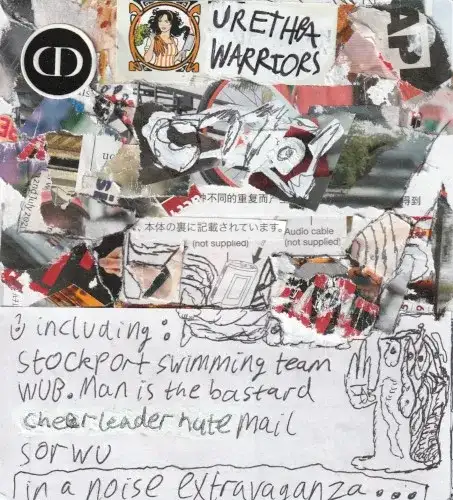 URETHRA
WARRIORS
22nd July 202
uc
S.
不同的重复而产
得到
、本体の裏に記載されています。
Audio cable
(not supplied)
(not supplied)
including:
stockport swimming team
WUB. Man is the bastard
cheerleader hate mail
sorwu
in a noise extravaganza....